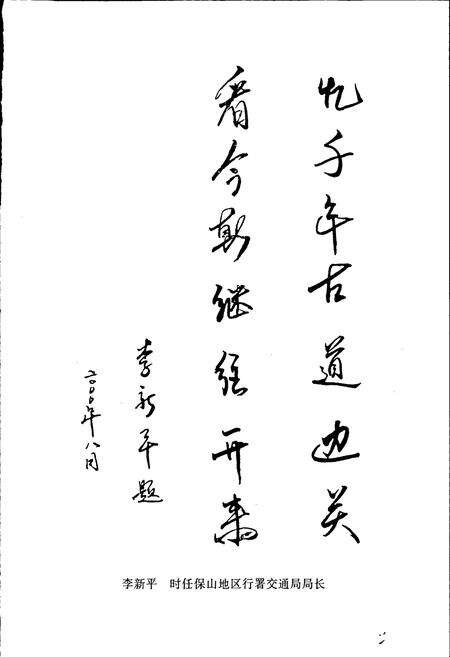 忆千年古道边关
看今朝继往开来
李新平题
二〇〇〇年八月
李新平　时任保山地区行署交通局局长